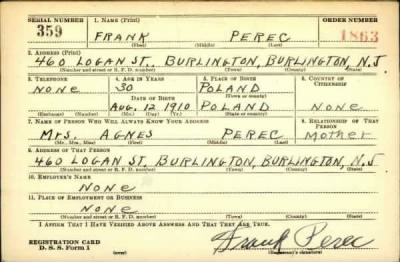 SERIAL NUMBER 1. NAME (Print) ORDER NUMBER
359 FRANK PEREC 1863
(First) (Middle) (Last)
2. ADDRESS (Print)
460 LOGAN ST. BURLINGTON, BURLINGTON, N.J
(Number and street or R. F. D. number) (Town) (County) (State)
3. TELEPHONE 4. AGE IN YEARS 5. PLACE OF BIRTH 6. COUNTRY OF CITIZENSHIP
NONE 30 POLAND
DATE OF BIRTH (Town or county)
AUG. 12 1910 POLAND NONE
(Exchange) (Number) (Mo.) (Day) (Yr.) (State or country)
7. NAME OF PERSON WHO WILL ALWAYS KNOW YOUR ADDRESS 8. RELATIONSHIP OF THAT PERSON
MRS. AGNES PEREC MOTHER
(Mr., Mrs., Miss) (First) (Middle) (Last)
9. ADDRESS OF THAT PERSON
460 LOGAN ST, BURLINGTON, BURLINGTON, N.J
(Number and street or R. F. D. number) (Town) (County) (State)
10. EMPLOYER'S NAME
NONE
11. PLACE OF EMPLOYMENT OR BUSINESS
NONE
(Number and street or R. F. D. number) (Town) (County) (State)
I AFFIRM THAT I HAVE VERIFIED ABOVE ANSWERS AND THAT THEY ARE TRUE.
REGISTRATION CARD
D. S. S. Form 1 Frank Perec
(Registrant's signature)